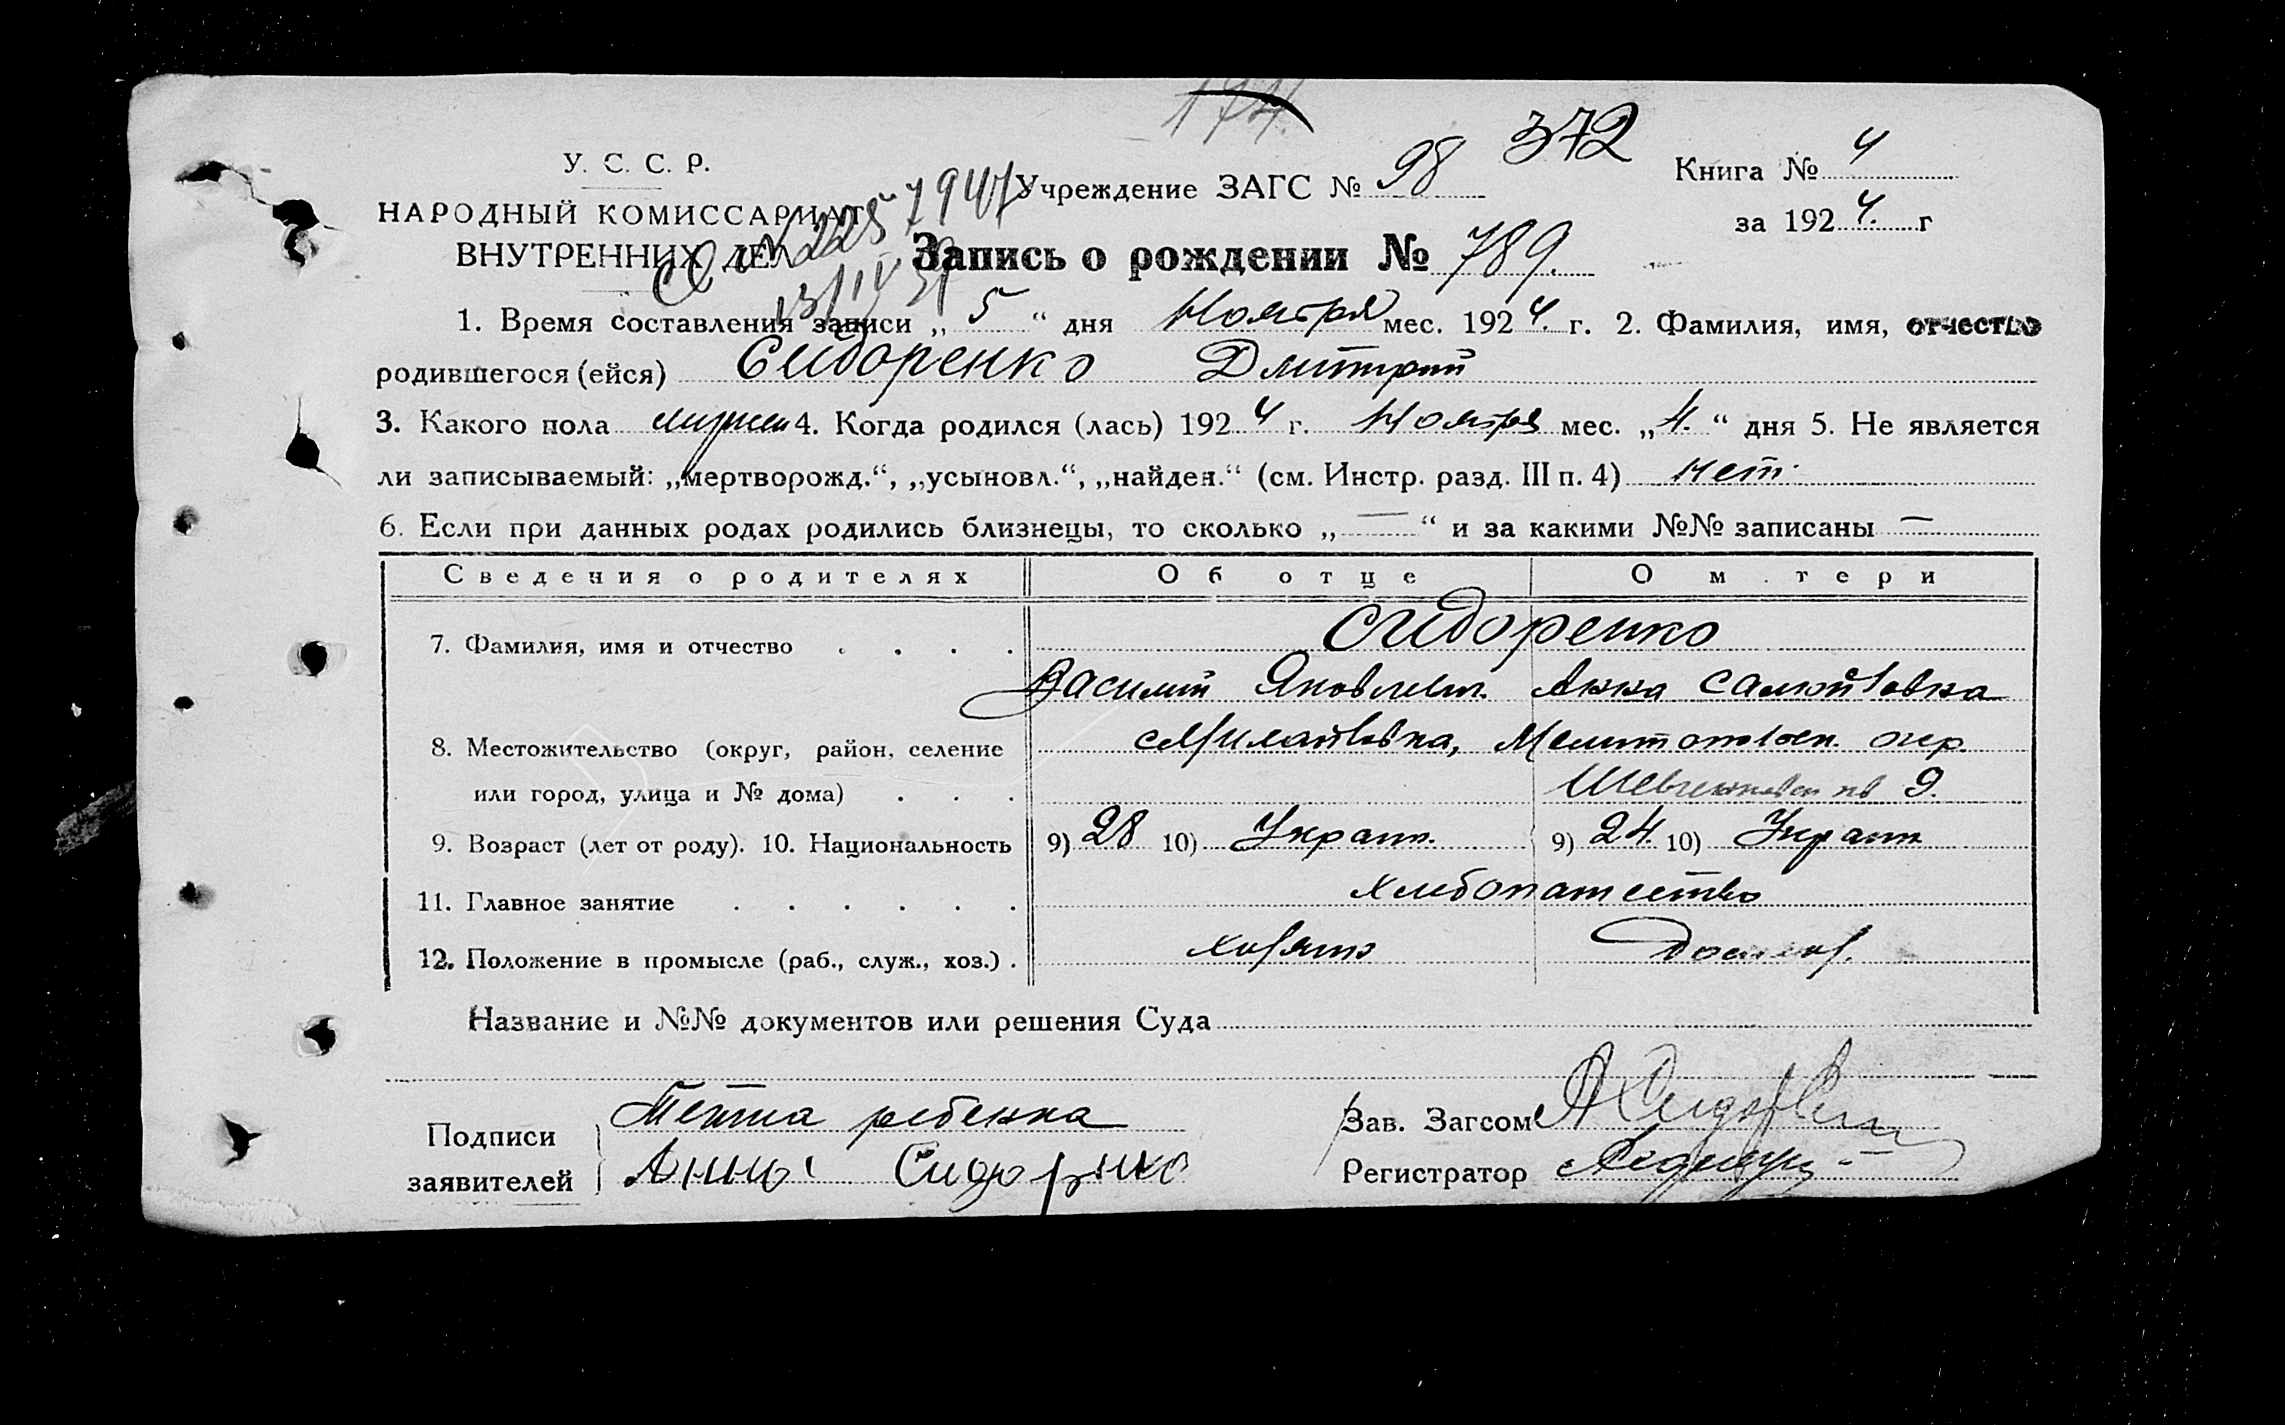 174.
372
У. С. С. Р.
НАРОДНЫЙ КОМИССАРИАТ
ВНУТРЕННИХ ДЕЛ
Учреждение ЗАГС № 98
Книга № 4
за 1924. г
Запись о рождении № 789.
1. Время составления записи „ 5 “ дня Ноября мес. 1924. г. 2. Фамилия, имя, отчество
родившегося (ейся) Сидоренко Дмитрий
3. Какого пола мужск 4. Когда родился (лась) 1924 г. Ноября мес. „4.“ дня 5. Не является
ли записываемый: „мертворожд.“, „усыновл.“, „найден.“ (см. Инстр. разд. III п. 4) нет.
6. Если при данных родах родились близнецы, то сколько „ — “ и за какими №№ записаны —
Сведения о родителях Об отце О м.тери
7. Фамилия, имя и отчество Сидоренко
Василий Яковлевич. Анна
8. Местожительство (округ, район, селение Мелитопольск. окр.
или город, улица и № дома) 9.
9. Возраст (лет от роду). 10. Национальность 9) 28 10) Украин. 9) 24. 10) Украин
11. Главное занятие хлебопашество
12. Положение в промысле (раб., служ., хоз.)
Название и №№ документов или решения Суда
Подписи
заявителей
ребенка
Анны Сидоренко
Зав. Загсом
Регистратор